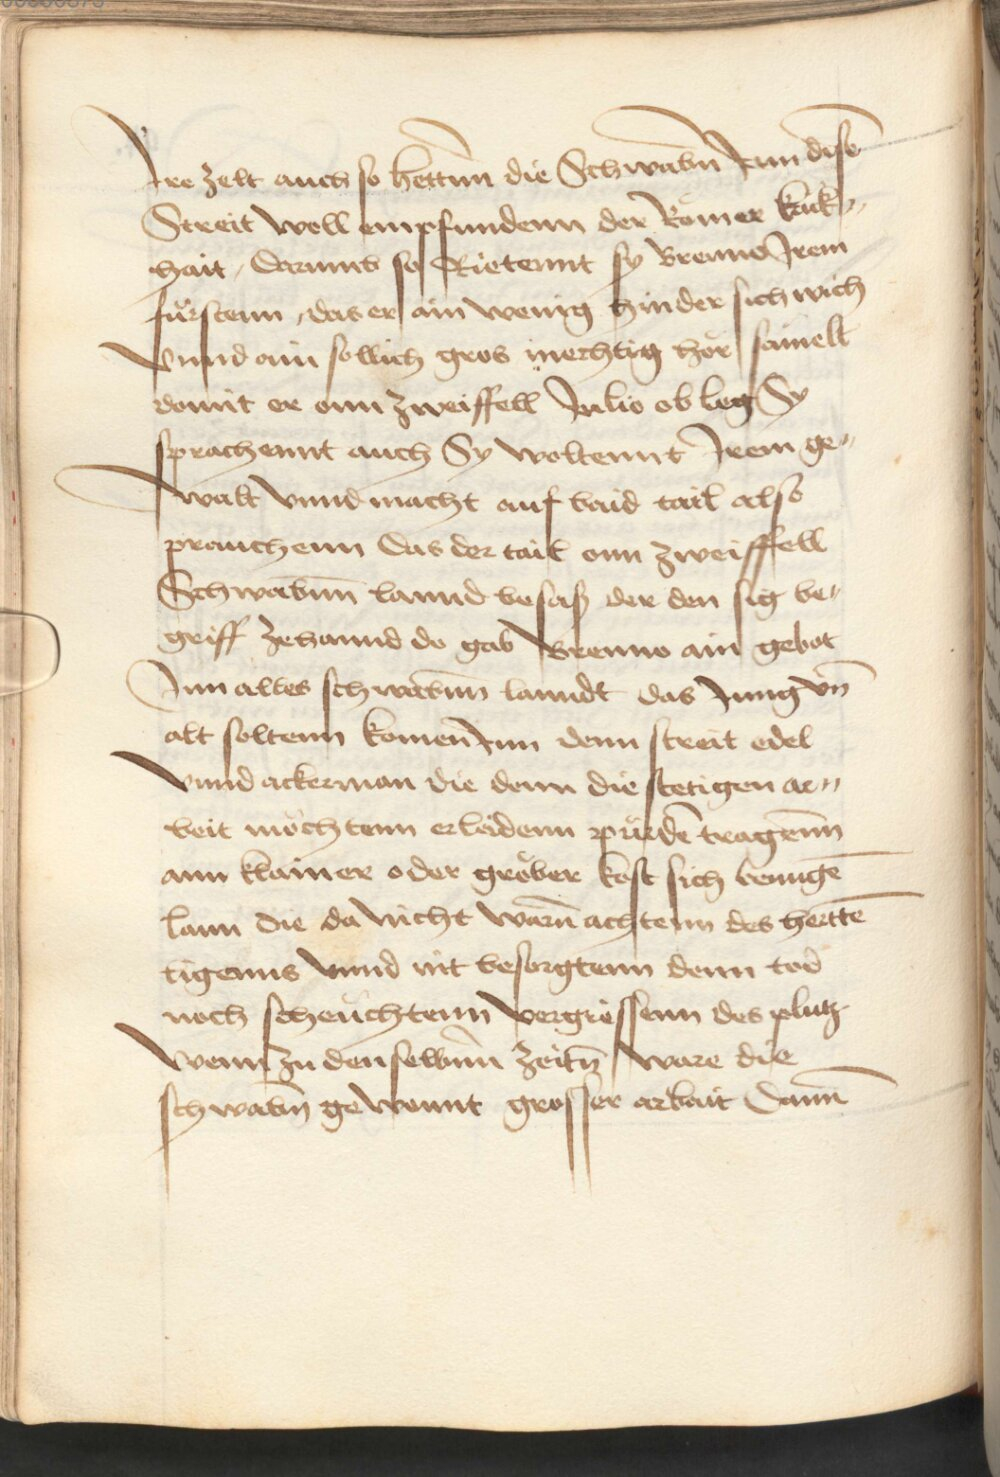 Ire zelt auch so hettenn die Schwabn Inn disē
Streit woll empfundenn der Römer keck-
hait, darumb so Rietennt sy Brenno Irem
fürstenn, das er ain wenig hinder sich wich
vnnd ain sollich gros mechtig hör samelt
domit er onn zweiffell Julio ob leg Sy
sprachennt auch Sy woltennt Irem ge-
walt vnnd macht auf baid tail also
prauchenn das der tail onn zweiffell
Schwabenn lannd besaß der den sig be-
griff zehannd do gab Brenno ain gebot
Inn alles schwabenn lanndt das Jung vn̄
alt soltenn komen̄ Inn denn streit edel
vnnd ackerman die denn die stetigen ar-
beit möchtenn erleidenn pürdē tragenn
ann klainer oder grober kost sich benügē
lann die da nicht warn̄ achtenn des hertē
ligenns vnnd nit besorgtenn denn tod
noch scheuchtenn vergiessenn des plutz
Wenn zu denselbenn zeitn̄ ware die
schwabn̄ gewonnt grosser arbait Dann̄